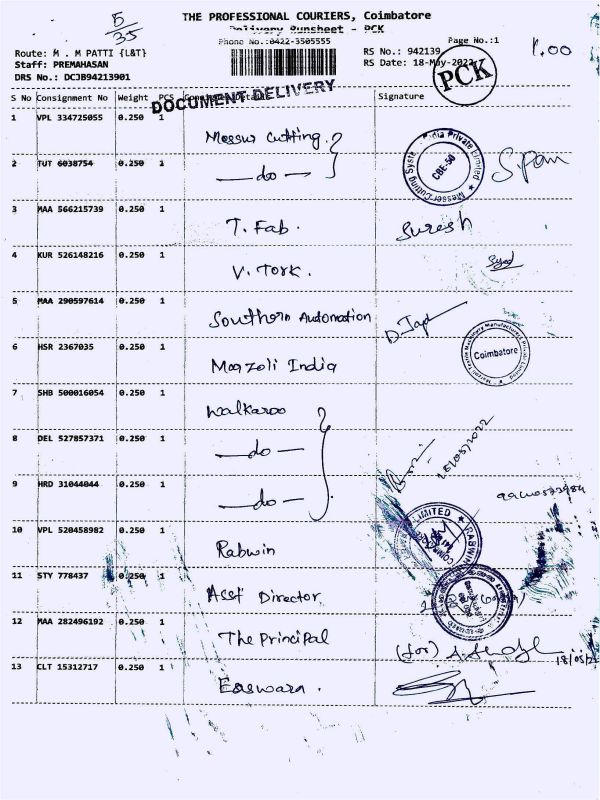 5
35
THE PROFESSIONAL COURIERS, Coimbatore
Delivery Runsheet - PCK
Phone No.:0422-3505555
Page No.:1
Route: M . M PATTI {L&T}
RS No.: 942139
1.00
Staff: PREMAHASAN
RS Date: 18-May-2022
DRS No.: DCJB94213901
PCK
DOCUMENT DELIVERY
S No Consignment No Weight PCS Consignee Details Signature
1 VPL 334725055 0.250 1 Messer Cutting
Messer Cutting Syste India Private Limited
CBE-50
2 TUT 6038754 0.250 1 — do —
3 MAA 566215739 0.250 1 T. Fab. Suresh
4 KUR 526148216 0.250 1 V. Tork.
5 MAA 290597614 0.250 1 Southern Automation
6 HSR 2367035 0.250 1 Marzoli India
Marzoli Textile Machinery Manufacturers Private Limited
Coimbatore
7 SHB 500016054 0.250 1 Walkaroo
8 DEL 527857371 0.250 1 — do —
18/05/2022
9 HRD 31044044 0.250 1 — do —
LIMITED ★ RABWIN
10 VPL 520458982 0.250 1 Rabwin
11 STY 778437 0.250 1 Asst Director
12 MAA 282496192 0.250 1 The Principal (for)
18/05/2
13 CLT 15312717 0.250 1 Easwara .